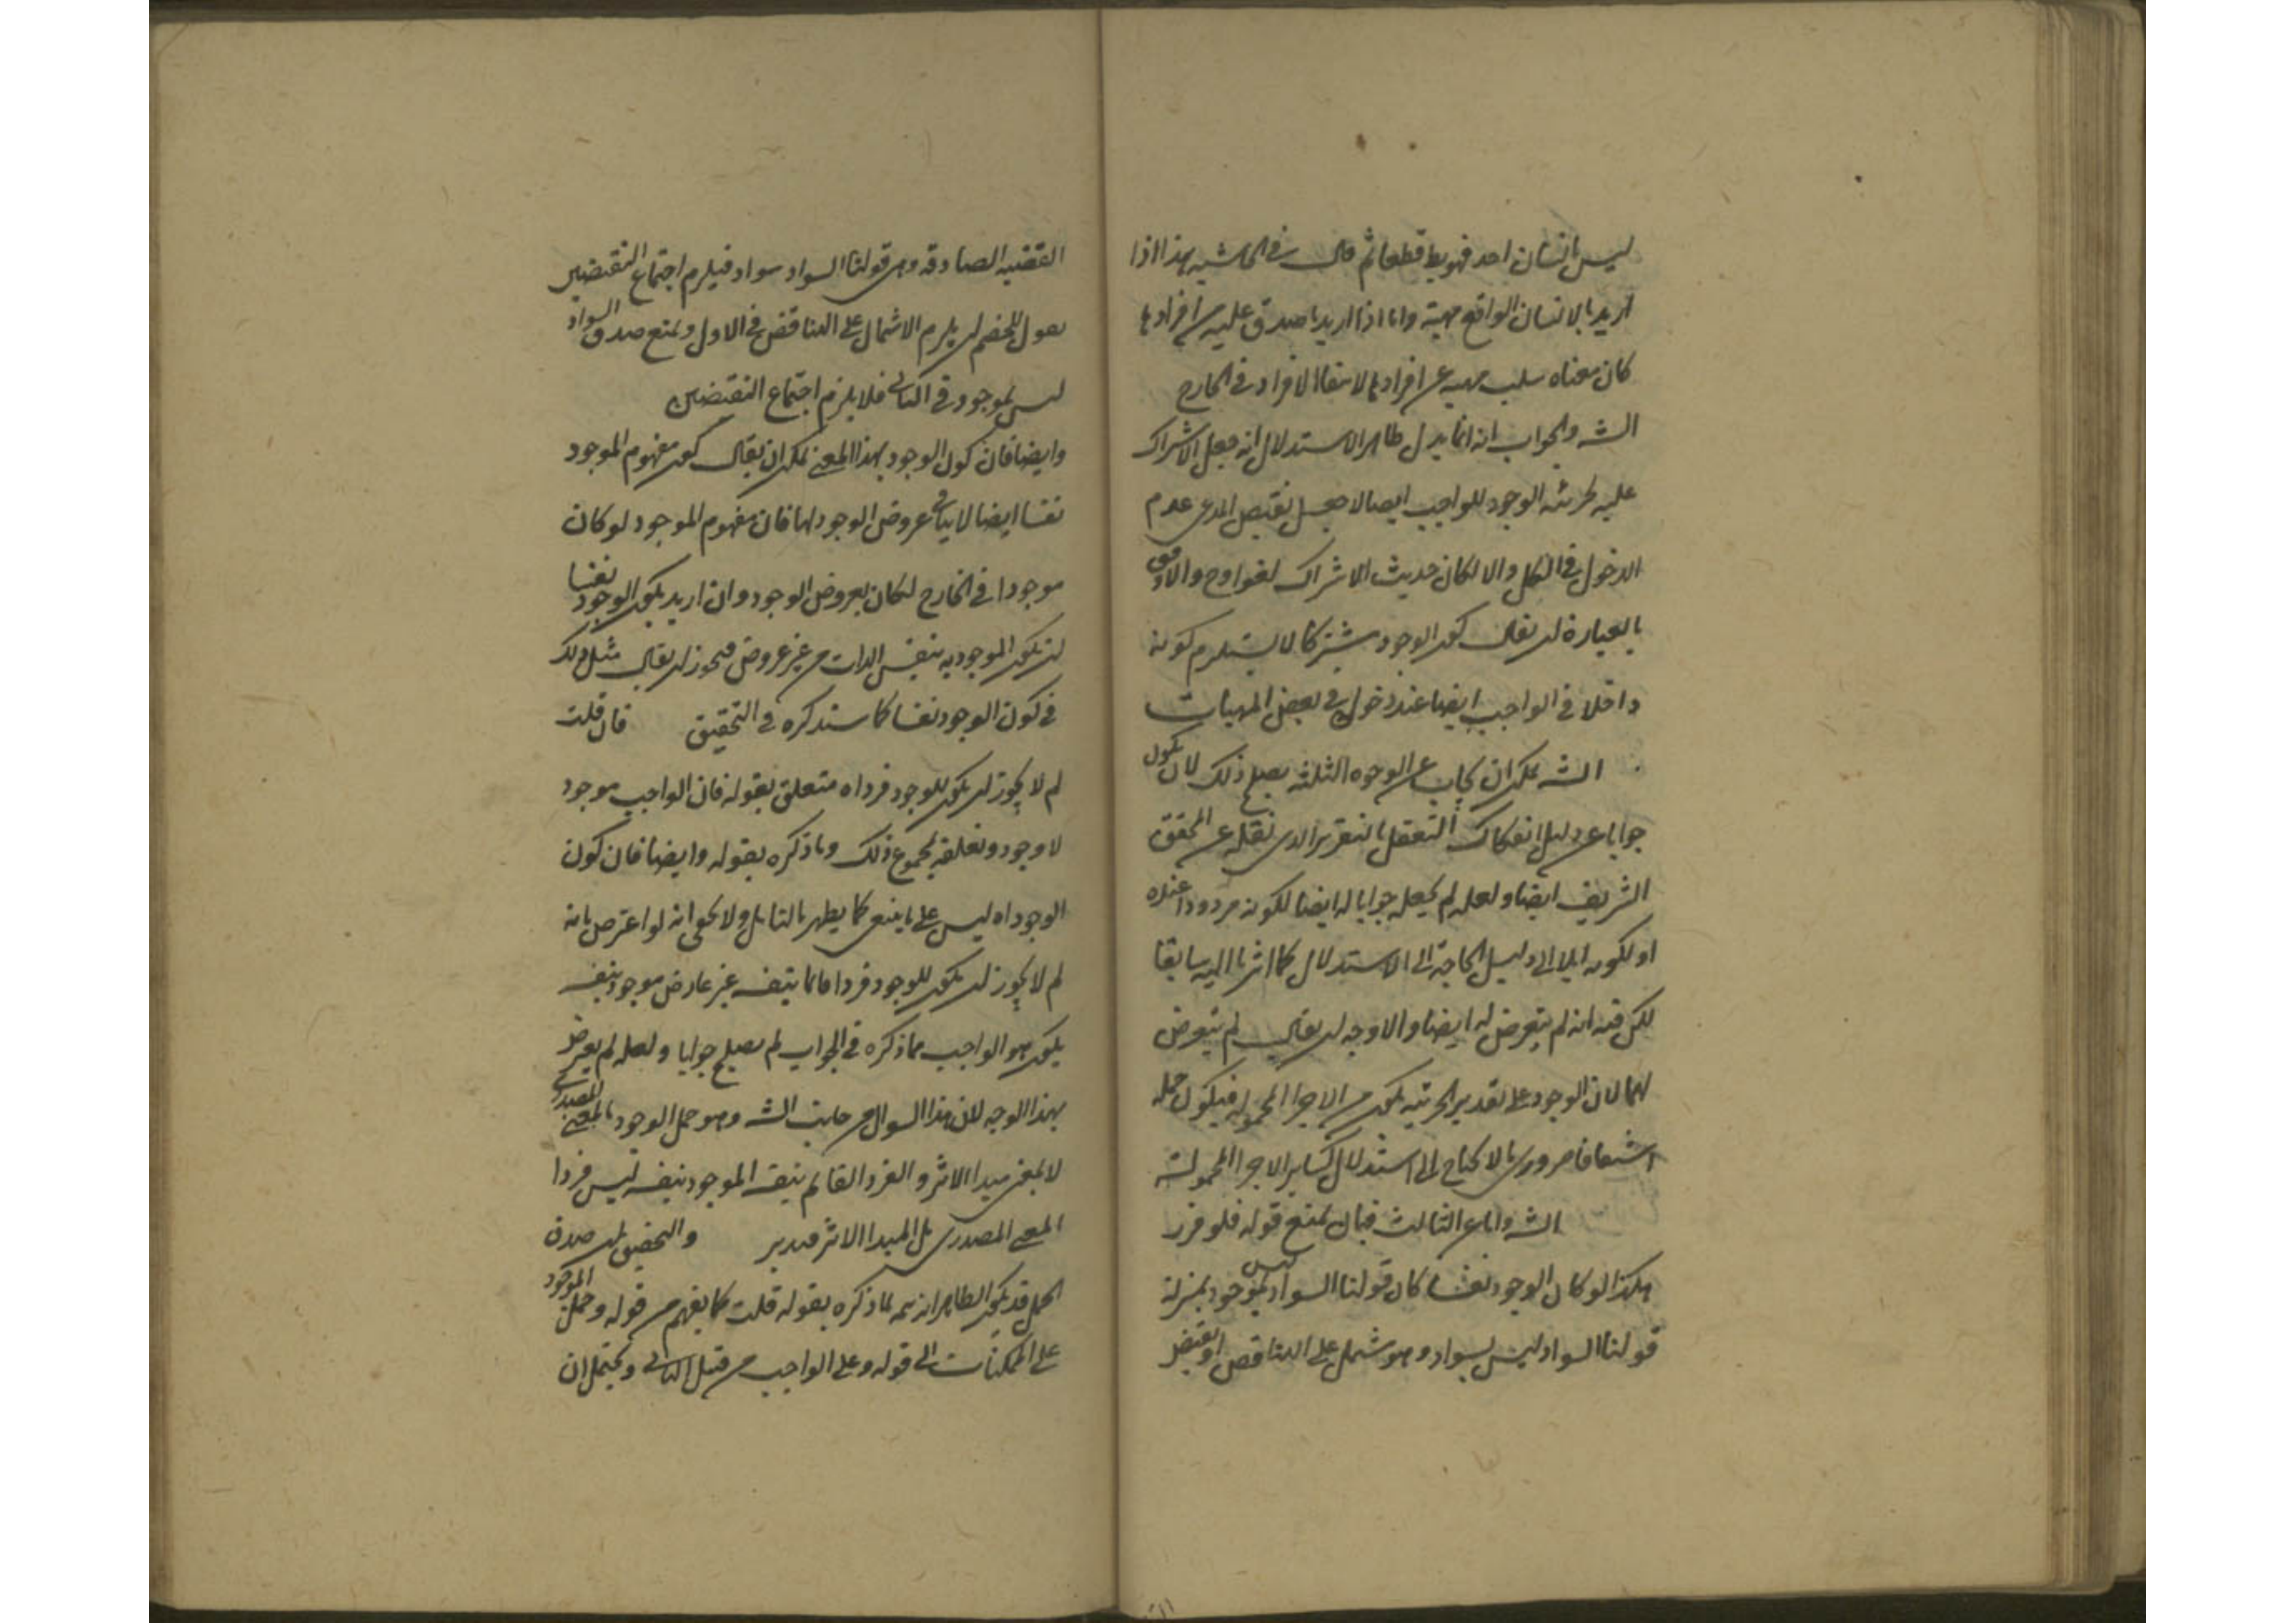 ليس بانسان احد فهو بط قطعا ثم قال في الحاشيه هذا اذا
اريد بالانسان الواقع مهية واما اذا اريد ما صدق عليه من افرادها
كان معناه سلب مهيه عن افرادها لانتفا الافراد في الخارج
الشه والجواب انه انما يدل ظاهر الاستدلال انه جعل الاشراك
عليه لجزئيه الوجود للواجب ايضا لا جعل نقيض المدعى عدم
الدخول في الكل والا لكان حديث الاشراك لغوا وح والاوفق
بالعبارة ان يقال كون الوجود مشتركا لا يستلزم كونه
داخلا في الواجب ايضا عند دخوله في بعض المهيات
الشه يمكن ان يجاب عن الوجوه الثلثه يصلح ذلك لان يكون
جوابا عن دليل انفكاك التعقل بالتقرير الذي نقله عن المحقق
الشريف ايضا ولعله لم يجعله جوابا له ايضا لكونه مردودا عنده
او لكونه ايلا الى دليل الحاجة الى الاستدلال كما اشرنا اليه سابقا
لكن فيه انه لم يتعرض له ايضا والاوجه ان يقال لم يتعرض
لهما لان الوجود على تقدير الجزئيه يكون من الاجزا المحموله فيكون حمله
اشتقاقا ضروريا لا يحتاج الى استدلال كساير الاجزا المحمولة
الشه واما عن الثالث فبان يمنع قوله فلو فرز
هكذا لو كان الوجود نفسا كان قولنا السواد ليس بموجود بمنزلة
قولنا السواد ليس بسواد وهو مشتمل على التناقض او نقيض
القضيه الصادقه وهي قولنا السواد سواد فيلزم اجتماع النقيضين
يقول للخصم ان يلزم الاشتمال على التناقض في الاول ويمنع صدق السواد
ليس بموجود في الثاني فلا يلزم اجتماع النقيضين
وايضا فان كون الوجود بهذا المعنى يمكن ان يقال كون مفهوم الموجود
نفسا ايضا لا ينافي عروض الوجود لها فان مفهوم الموجود لو كان
موجودا في الخارج لكان بعروض الوجود وان اريد بكون الوجود نفسا
ان يكون الموجوديه بنفس الذات من غير عروض فيجوز ان يقال مثل ذلك
في كون الوجود نفسا كما ستذكره في التحقيق فان قلت
لم لا يجوز ان يكون للوجود فرد اه متعلق بقوله فان الواجب موجود
لا وجود وتعلقه لمجموع ذلك وما ذكره بقوله وايضا فان كون
الوجود اه ليس على ما ينبغي كما يظهر بالتامل ولا يخفى انه لو اعترض بانه
لم لا يجوز ان يكون للوجود فردا قائما بنفسه غير عارض موجود بنفسه
يكون هو الواجب مما ذكره في الجواب لم يصلح جوابا ولعله لم يتعرض
بهذا الوجه لان هذا السوال من جانب الشه وهو حمل الوجود بالمعنى المصدري
لا بمعنى مبدا الاثر والفرد القائم بنفسه الموجود بنفسه ليس فردا
المعنى المصدري بل المبدا الاثر فتدبر والتحقيق ان صدق
الحمل قد يكون الظاهر انه تتمه لما ذكره بقوله قلت كما يفهم من قوله وحمل الموجود
على الممكنات الى قوله وعلى الواجب من قبل الثاني ويحتمل ان